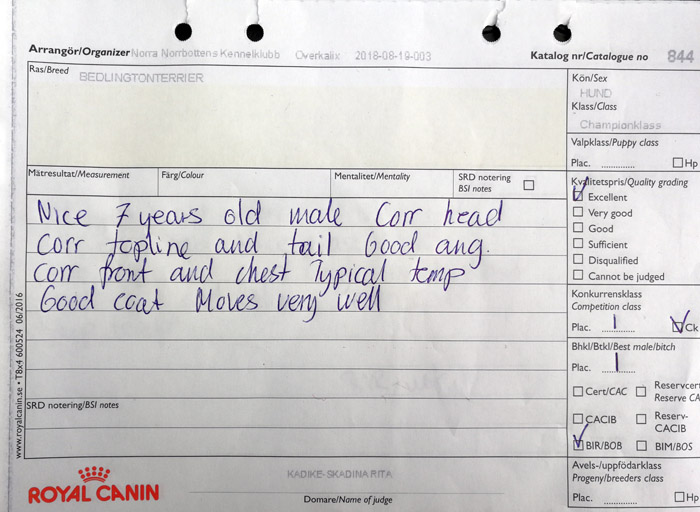 Arrangör/Organizer Norra Norrbottens Kennelklubb Överkalix 2018-08-19-003 Katalog nr/Catalogue no 844
Ras/Breed BEDLINGTONTERRIER
Kön/Sex
HUND
Klass/Class
Championklass
Valpklass/Puppy class
Plac. ............ Hp
Mätresultat/Measurement Färg/Colour Mentalitet/Mentality SRD notering
BSI notes
Nice 7 years old male Corr head
Corr topline and tail Good ang.
Corr front and chest Typical temp
Good coat Moves very well
Kvalitetspris/Quality grading
Excellent
Very good
Good
Sufficient
Disqualified
Cannot be judged
Konkurrensklass
Competition class
Plac. 1 Ck
Bhkl/Btkl/Best male/bitch
Plac. 1
Cert/CAC Reservcert
Reserve CA
CACIB Reserv-
CACIB
BIR/BOB BIM/BOS
Avels-/uppfödarklass
Progeny/breeders class
Plac. ............ Hp
SRD notering/BSI notes
www.royalcanin.se • T8x4 600524 06/2016
ROYAL CANIN
KADIKE-SKADINA RITA
Domare/Name of judge